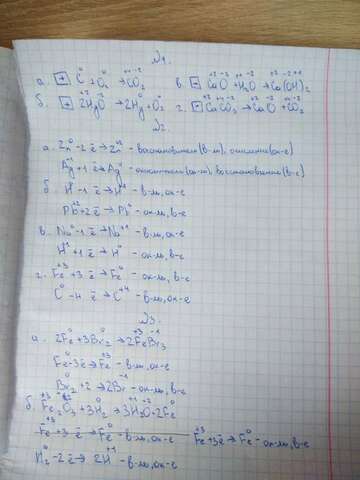 №1.
а. [+] C⁰ + O₂⁰ → C⁺⁴O₂⁻² в. [-] Ca⁺²O⁻² + H₂⁺O⁻² → Ca⁺²(O⁻²H⁺¹)₂
б. [+] 2Hg⁺²O⁻² → 2Hg⁰ + O₂⁰ г. [-] Ca⁺²C⁺⁴O₃⁻² → Ca⁺²O⁻² + C⁺⁴O₂⁻²
№2.
а. Zn⁰ - 2ē → Zn⁺² - восстановитель (в-ль), окисление (ок-е)
Ag⁺¹ + 1ē → Ag⁰ - окислитель (ок-ль), восстановление (в-е)
б. H⁰ - 1ē → H⁺¹ - в-ль, ок-е
Pb⁺² + 2ē → Pb⁰ - ок-ль, в-е
в. Na⁰ - 1ē → Na⁺¹ - в-ль, ок-е
H⁺¹ + 1ē → H⁰ - ок-ль, в-е
г. Fe⁺³ + 3ē → Fe⁰ - ок-ль, в-е
C⁰ - 4ē → C⁺⁴ - в-ль, ок-е
№3.
а. 2Fe⁰ + 3Br₂⁰ → 2Fe⁺³Br₃⁻¹
Fe⁰ - 3ē → Fe⁺³ - в-ль, ок-е
Br₂⁰ + 2 → 2Br⁻¹ - ок-ль, в-е
б. Fe₂⁺³O₃⁻² + 3H₂⁰ → 3H₂⁺¹O⁻² + 2Fe⁰
Fe⁺³ + 3ē → Fe⁰ - в-ль, ок-е Fe⁺³ + 3ē → Fe⁰ - ок-ль, в-е
H₂⁰ - 2ē → 2H⁺¹ - в-ль, ок-е